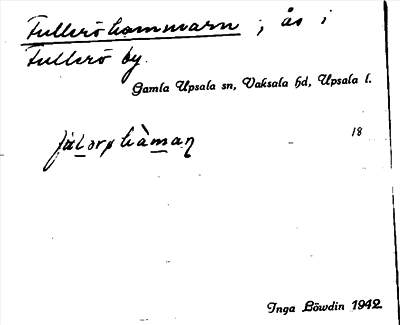 Fullerö hammarn, ås i
Fullerö by.
Gamla Upsala sn, Vaksala hd, Upsala l.
18
Inga Löwdin 1942.